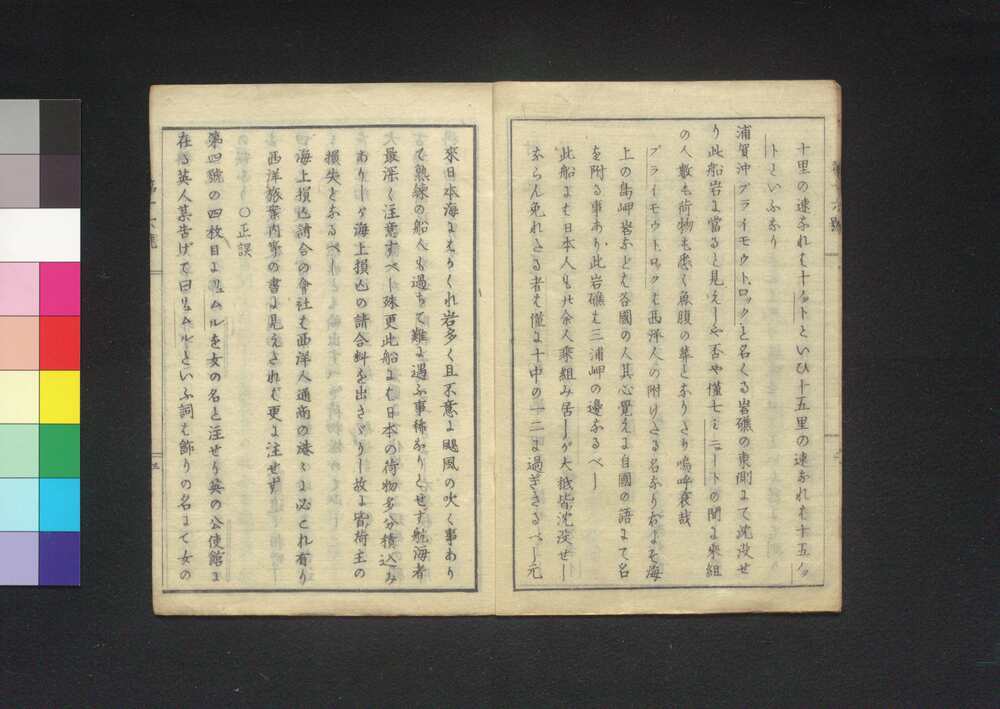 十里の速なれは十ノットといひ十五里の速なれは十五ノッ
トといふなり
浦賀沖プライモウトロックと名くる岩礁の東側にて沈没せ
り此船岩に當ると見えしや否や僅七ミニュートの間に乗組
の人數も荷物も悉く魚腹の葬となりさり嗚呼哀哉
プライモウトロックは西洋人の附けたる名なりおよそ海
上の島岬岩などは各國の人其心覚えに自國の語にて名
を附る事あり此岩礁は三浦岬の邊なるべし
此船には日本人も卅余人乗組み居しが大抵皆沈没せし
ならん免れたる者は僅に十中の一二に過ぎざるべし元
來日本海にはかくれ岩多く且不意に颶風の吹く事あり
て熟練の船人も過ちて難に遇ふ事稀なりとせず航海者
最深く注意すべし殊更此船には日本の荷物多分積込み
ありしが海上損亡の請合料を出さゞりし故に皆荷主の
損失となるべし
海上損亡請合の會社は西洋人通商の港々に必これ有り
西洋旅案内等の書に見えたれば更に注せず
〇正誤
第四號の四枚目にハムルを女の名と注せり英の公使館に
在る英人某告げて曰ハムルといふ詞は飾りの名にて女の